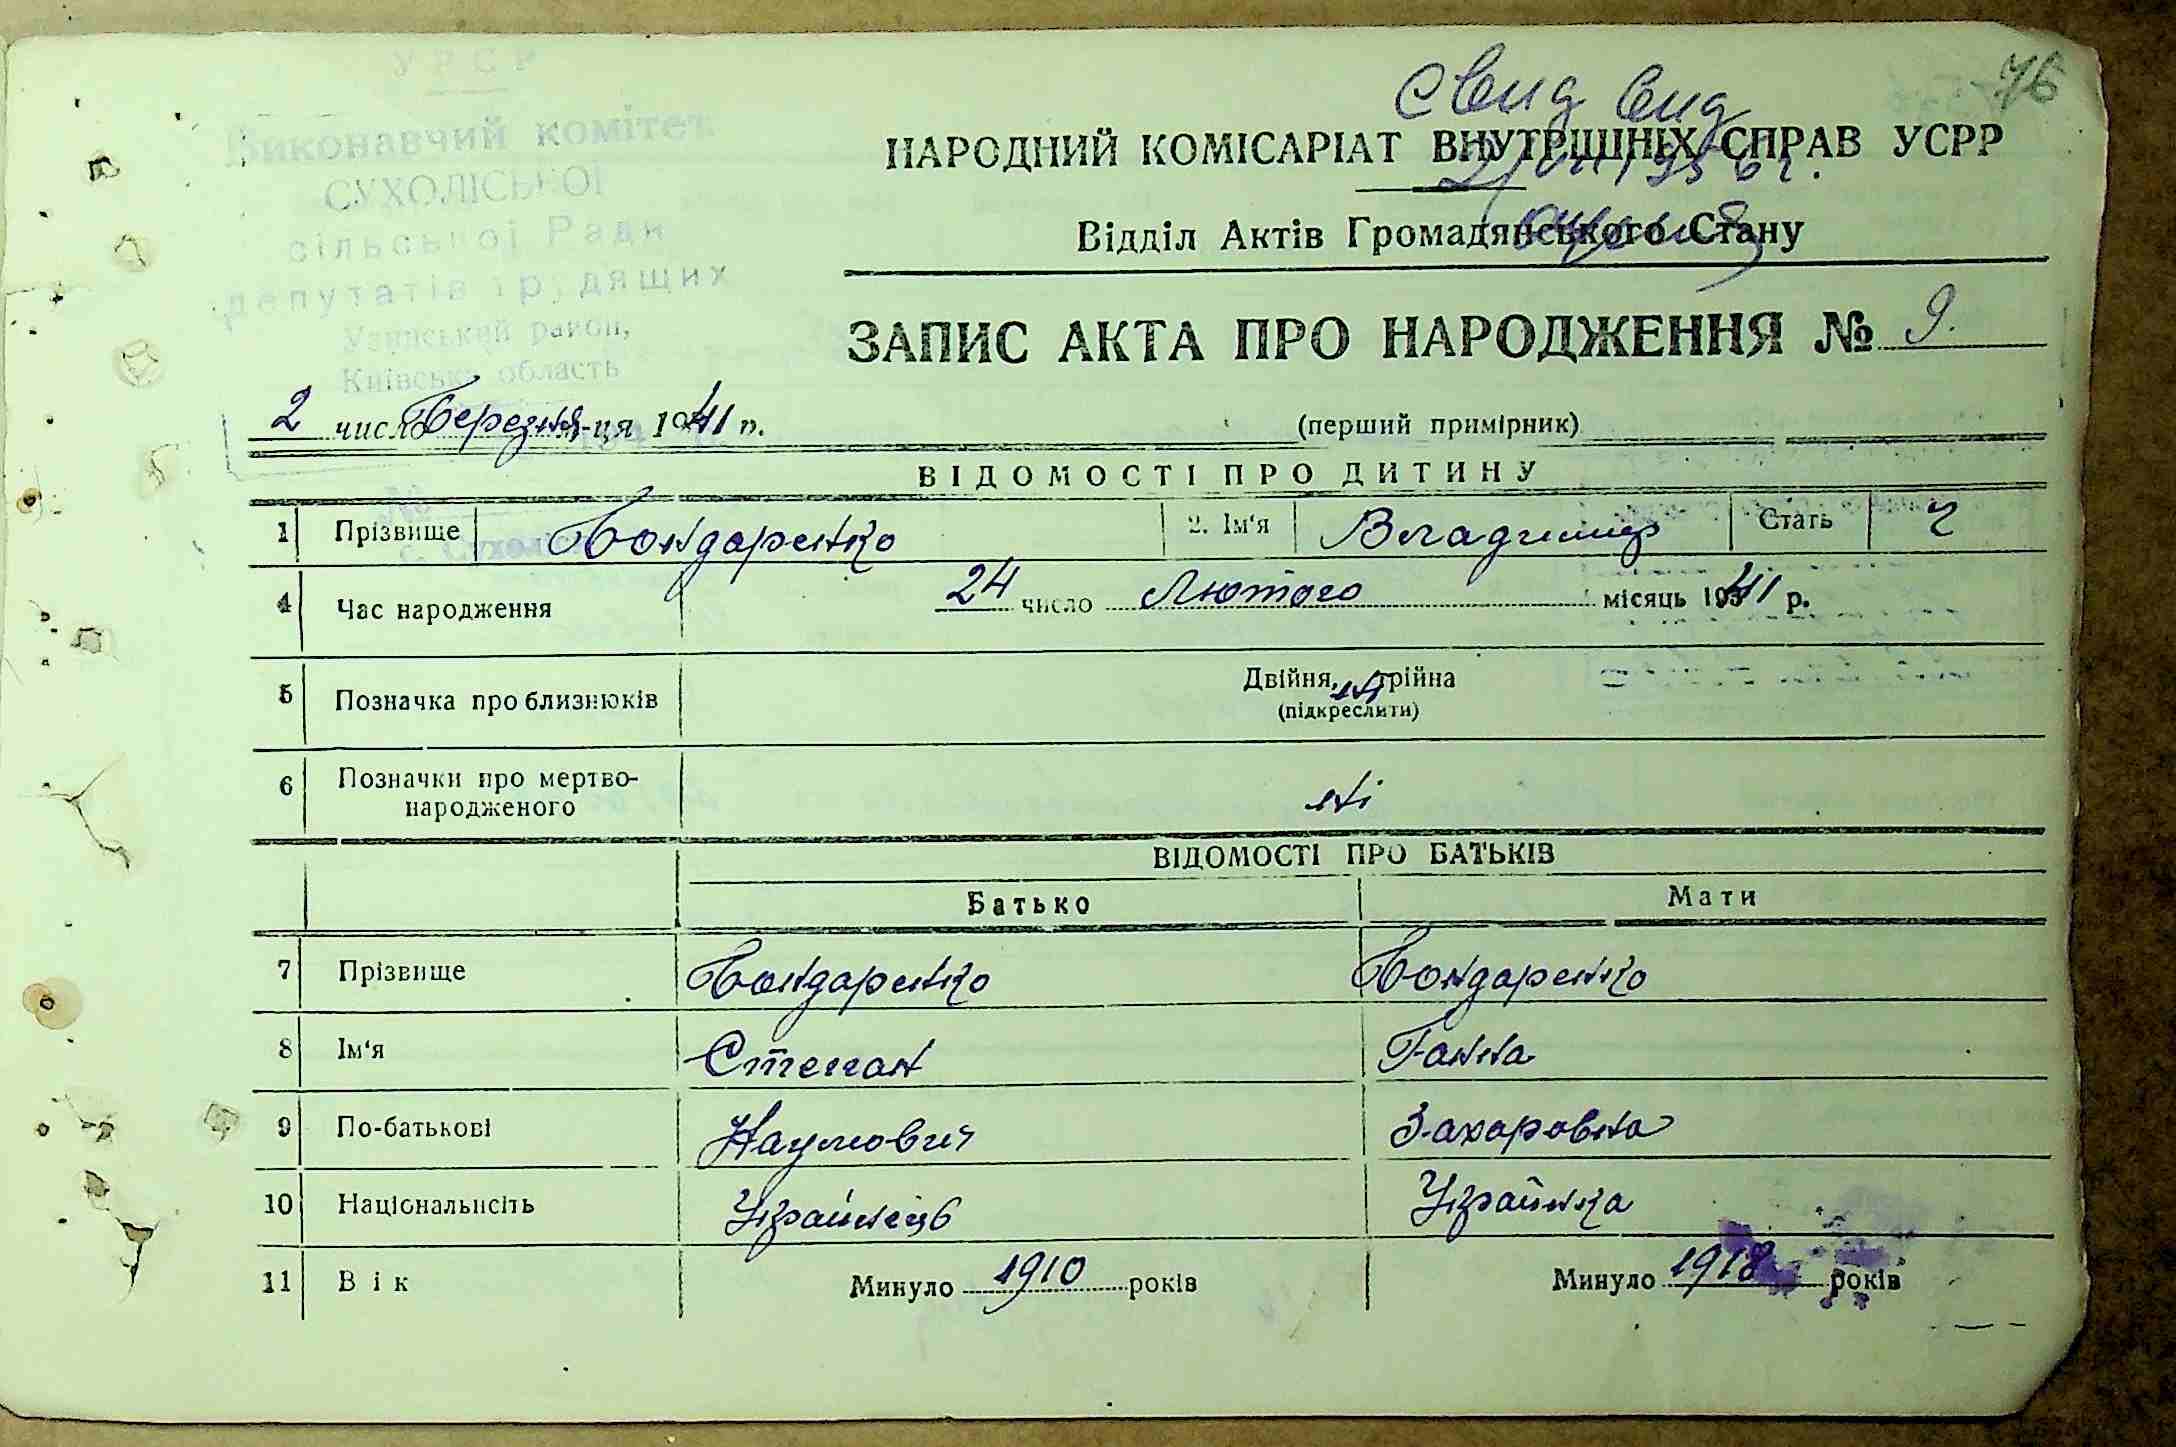 76
Свид вид
УРСР
Виконавчий комітет
СУХОЛІСЬКОЇ
сільської Ради
депутатів трудящих
Узинський район,
Київська область
НАРОДНИЙ КОМІСАРІАТ ВНУТРІШНІХ СПРАВ УСРР
Відділ Актів Громадянського Стану
ЗАПИС АКТА ПРО НАРОДЖЕННЯ № 9.
2 число Березня м-ця 1941 р.
(перший примірник)
ВІДОМОСТІ ПРО ДИТИНУ
1 Прізвище Бондаренко 2. Ім'я Владимир Стать ч
4 Час народження 24 число Лютого місяць 1941 р.
5 Позначка про близнюків Двійня, трійна ні
(підкреслити)
6 Позначки про мертво-
народженого ні
ВІДОМОСТІ ПРО БАТЬКІВ
Батько Мати
7 Прізвище Бондаренко Бондаренко
8 Ім'я Степан Ганна
9 По-батькові Наумович Захаровна
10 Національність Українець Українка
11 Вік Минуло 1910 років Минуло 1918 років